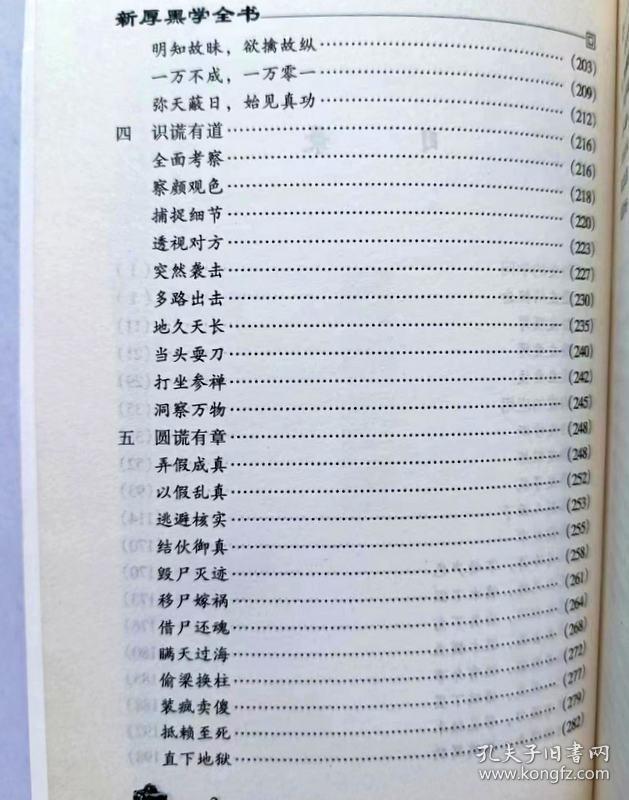 新厚黑学全书
明知故昧，欲擒故纵……(203)
一万不成，一万零一……(209)
弥天蔽日，始见真功……(212)
四 识谎有道……(216)
全面考察……(216)
察颜观色……(218)
捕捉细节……(220)
透视对方……(223)
突然袭击……(227)
多路出击……(230)
地久天长……(235)
当头耍刀……(240)
打坐参禅……(242)
洞察万物……(245)
五 圆谎有章……(248)
弄假成真……(248)
以假乱真……(252)
逃避核实……(253)
结伙御真……(255)
毁尸灭迹……(258)
移尸嫁祸……(261)
借尸还魂……(264)
瞒天过海……(268)
偷梁换柱……(272)
装疯卖傻……(277)
抵赖至死……(279)
直下地狱……(282)
孔夫子旧书网
www.kongfz.com